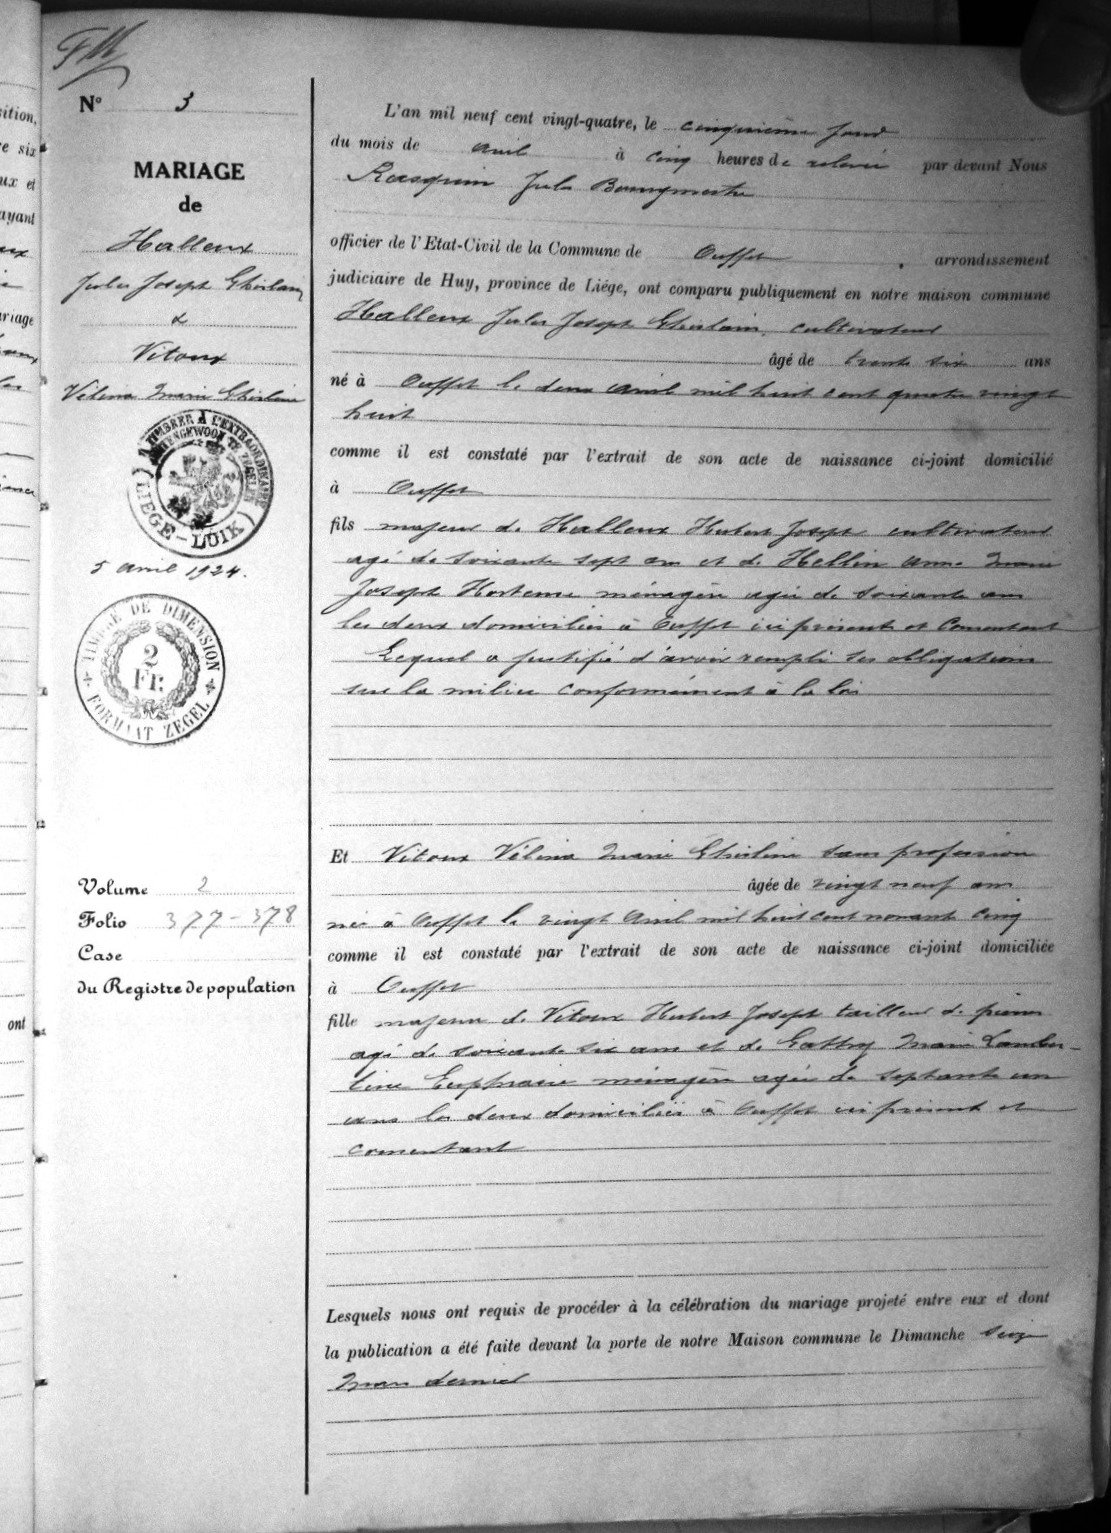 FM
N° 3
MARIAGE
de
Halleux
Jules Joseph Ghislain
&
Vitoux
Vélina Marie Ghislaine
TIMBRER A L'EXTRAORDINAIRE
BUITENGEWOON TE ZEGELEN
LIEGE-LUIK
5 avril 1924.
TIMBRE DE DIMENSION
2
Fr.
FORMAAT ZEGEL
Volume 2
Folio 377-378
Case
du Registre de population
L'an mil neuf cent vingt-quatre, le cinquième jour
du mois de avril à cinq heures de relevée par devant Nous
Rasquin Jules Bourgmestre
officier de l'Etat-Civil de la Commune de Ouffet arrondissement
judiciaire de Huy, province de Liége, ont comparu publiquement en notre maison commune
Halleux Jules Joseph Ghislain, cultivateur
âgé de trente six ans
né à Ouffet le deux avril mil huit cent quatre vingt
huit
comme il est constaté par l'extrait de son acte de naissance ci-joint domicilié
à Ouffet
fils majeur de Halleux Hubert Joseph cultivateur
agé de soixante sept ans et de Hellin Anne Marie
Joseph Hortense ménagère agée de soixante ans
les deux domiciliés à Ouffet ici présents et consentant
Lequel a justifié d'avoir rempli ses obligations
sur la milice conformément à la loi
Et Vitoux Vélina Marie Ghislaine sans profession
âgée de vingt neuf ans
née à Ouffet le vingt avril mil huit cent nonante cinq
comme il est constaté par l'extrait de son acte de naissance ci-joint domiciliée
à Ouffet
fille majeure de Vitoux Hubert Joseph tailleur de pierres
agé de soixante six ans et de Marie Lamber-
tine Euphrasie ménagère agée de septante un
ans les deux domiciliés à Ouffet ici présents et
consentant
Lesquels nous ont requis de procéder à la célébration du mariage projeté entre eux et dont
la publication a été faite devant la porte de notre Maison commune le Dimanche seize
Mars dernier